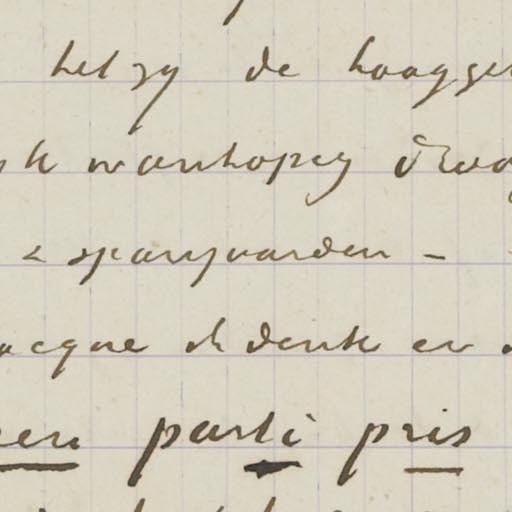 hetzy de hoogge
k wanhopig droo
& sparyvarden -
acque ik denk er
een parti pris